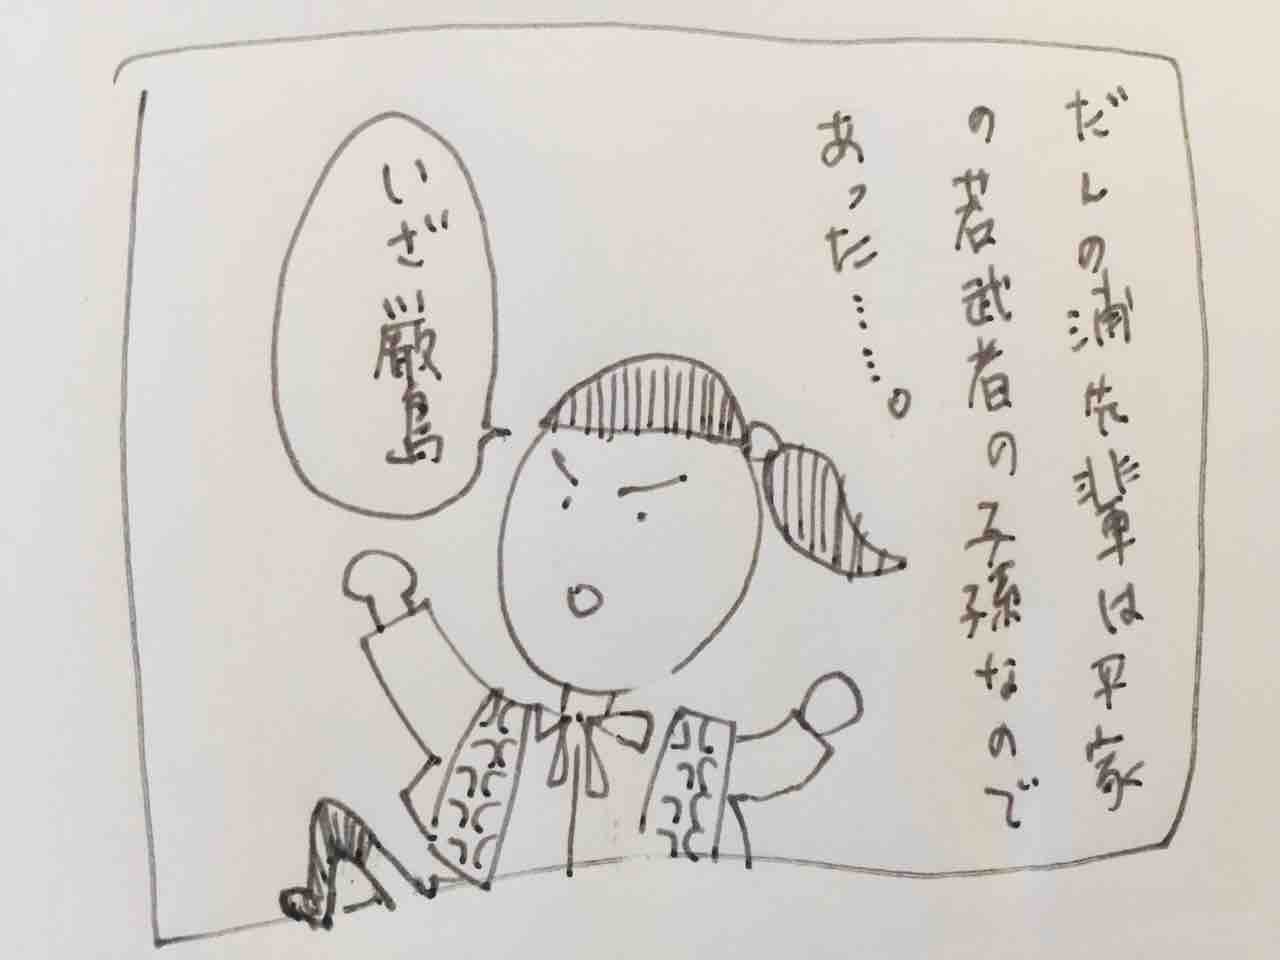 だんの浦先輩は平家
の若武者の子孫なので
あった……。
いざ厳島